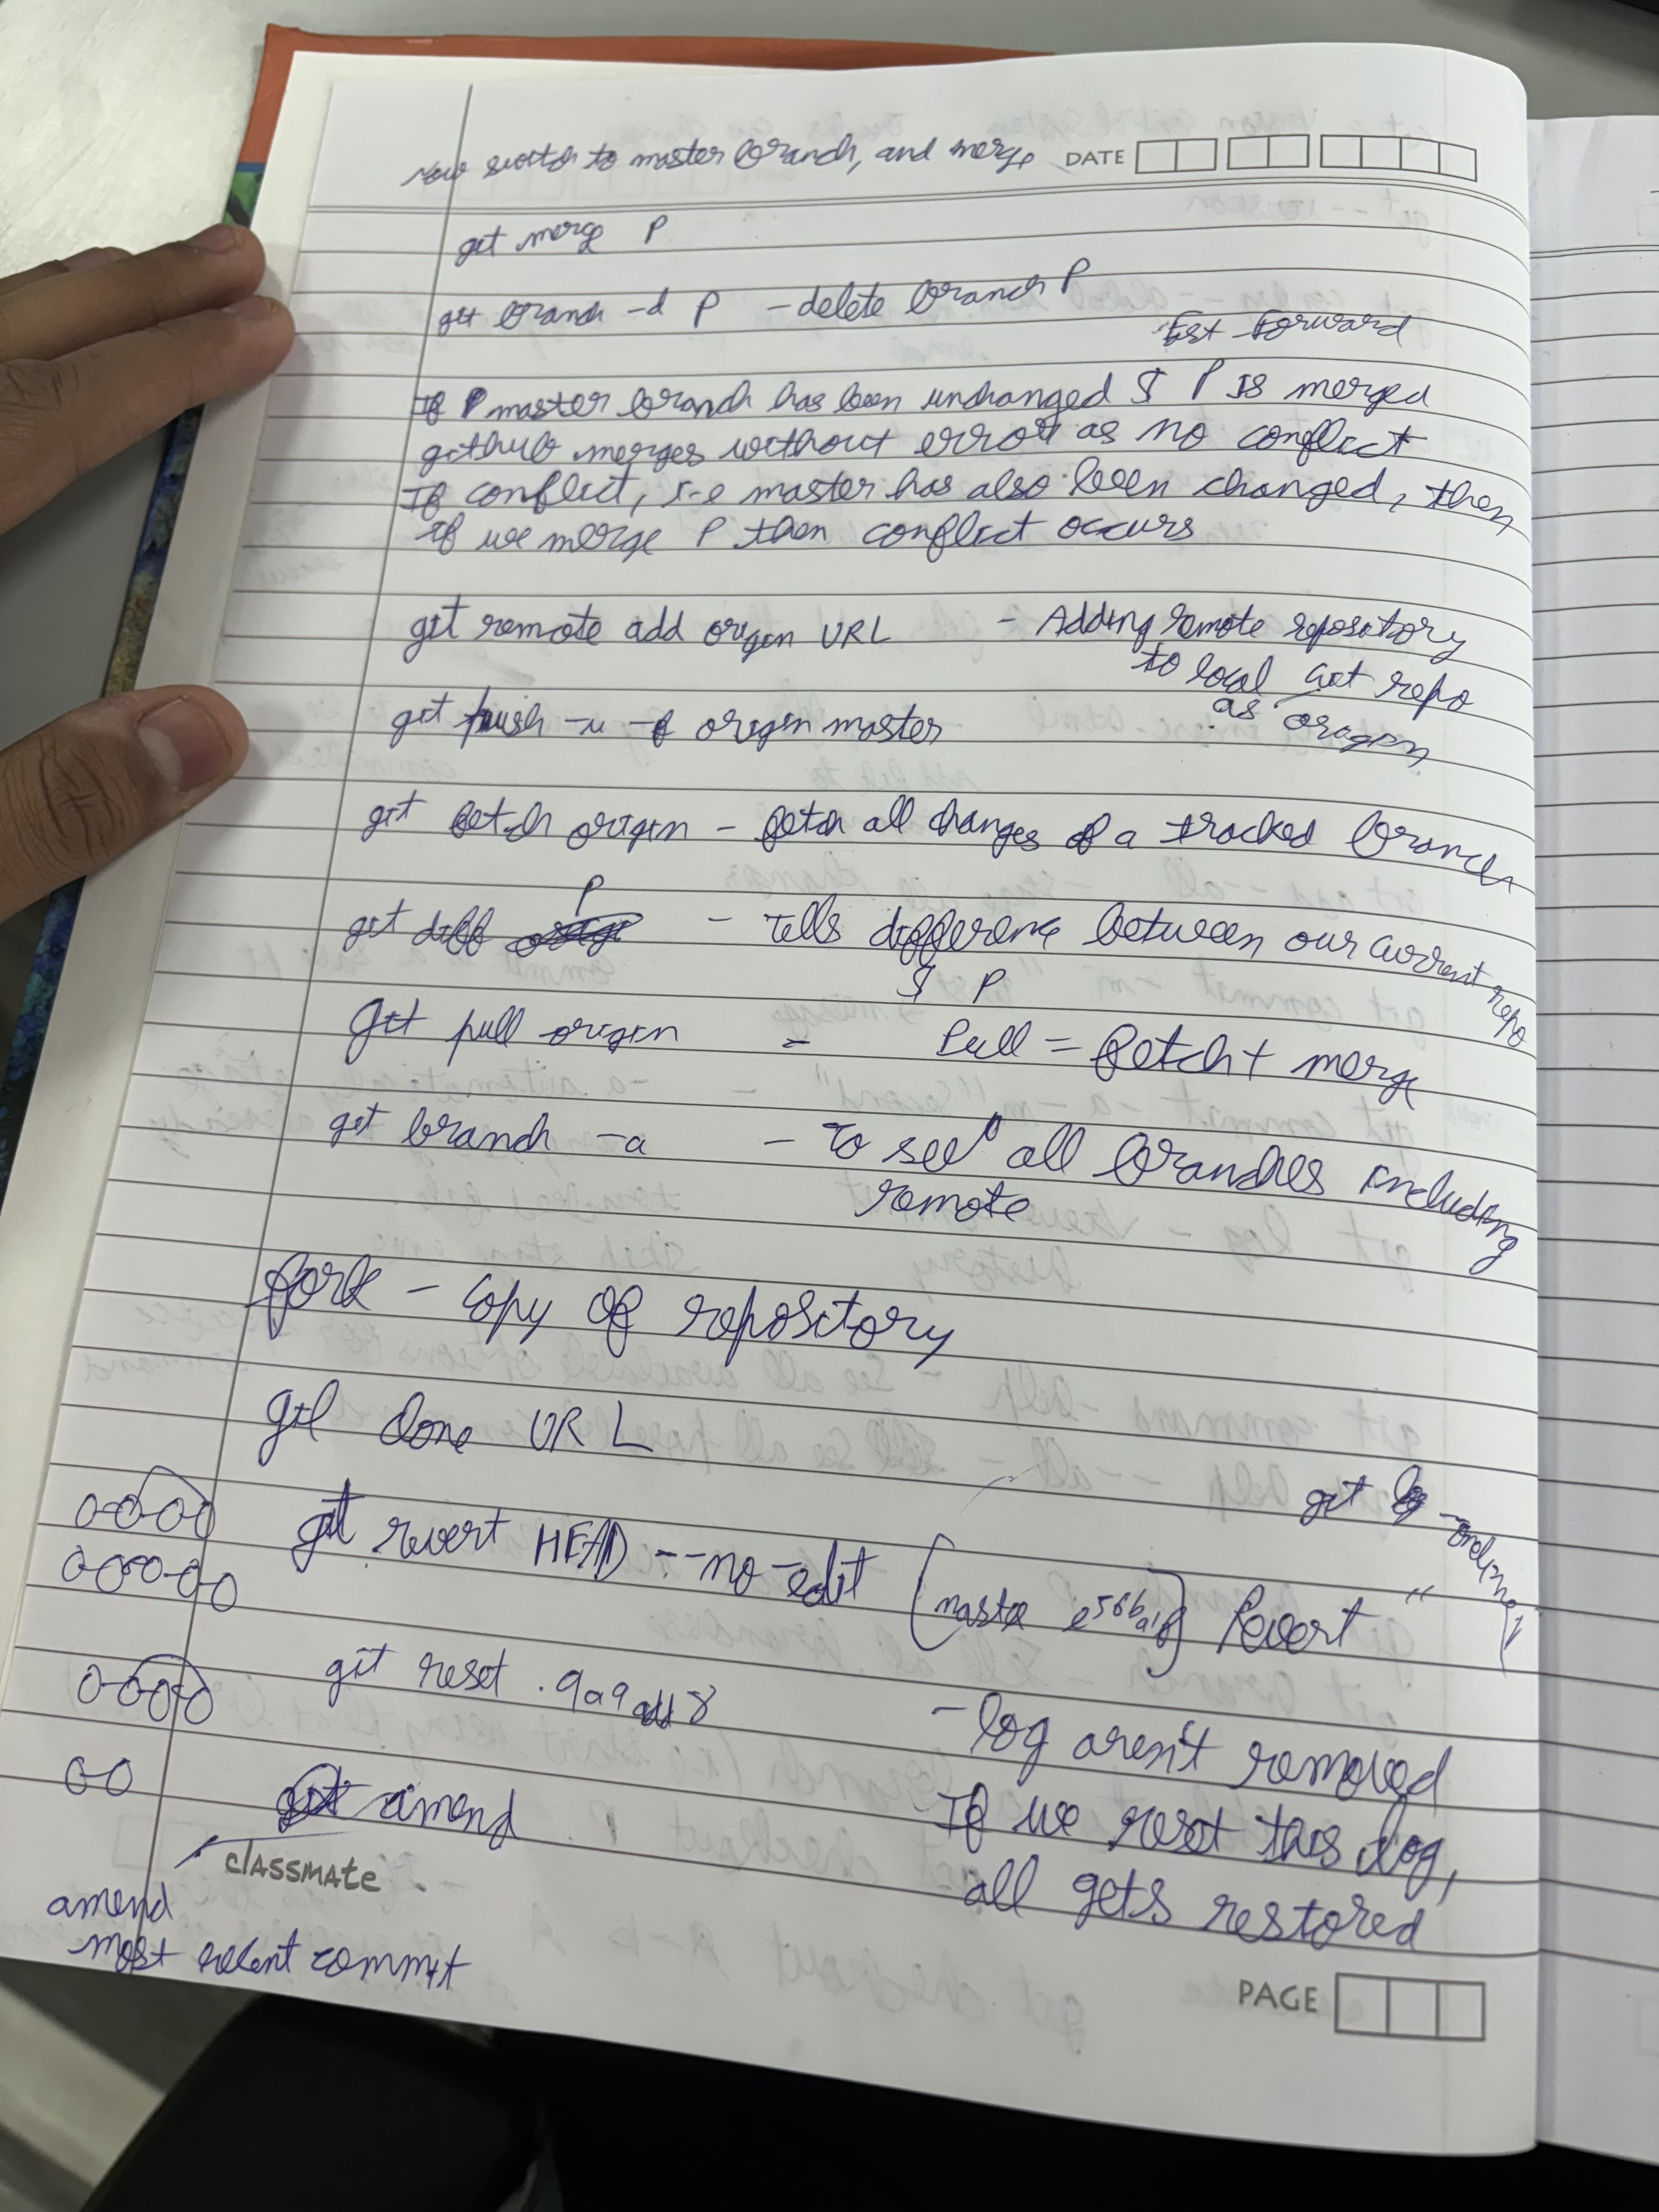 Now switch to master branch, and merge DATE
git merge P
git branch -d P - delete branch P
Fast Forward
If master branch has been unchanged & P is merged
github merges without error as no conflict
If conflict, i-e master has also been changed, then
if we merge P then conflict occurs
git remote add origin URL - Adding remote repository
to local Git repo
as origin
git push -u -f origin master
git fetch origin - fetch all changes of a tracked branch
P
git diff - Tells difference between our current repo
& P
git pull origin - Pull = fetch + merge
git branch -a - to see all branches including
remote
fork - copy of repository
git clone URL
git log --oneline
git revert HEAD --no-edit (master Revert "
git reset - log aren't removed
If we reset this log,
all gets restored
git amend
classmate
amend
most recent commit
PAGE